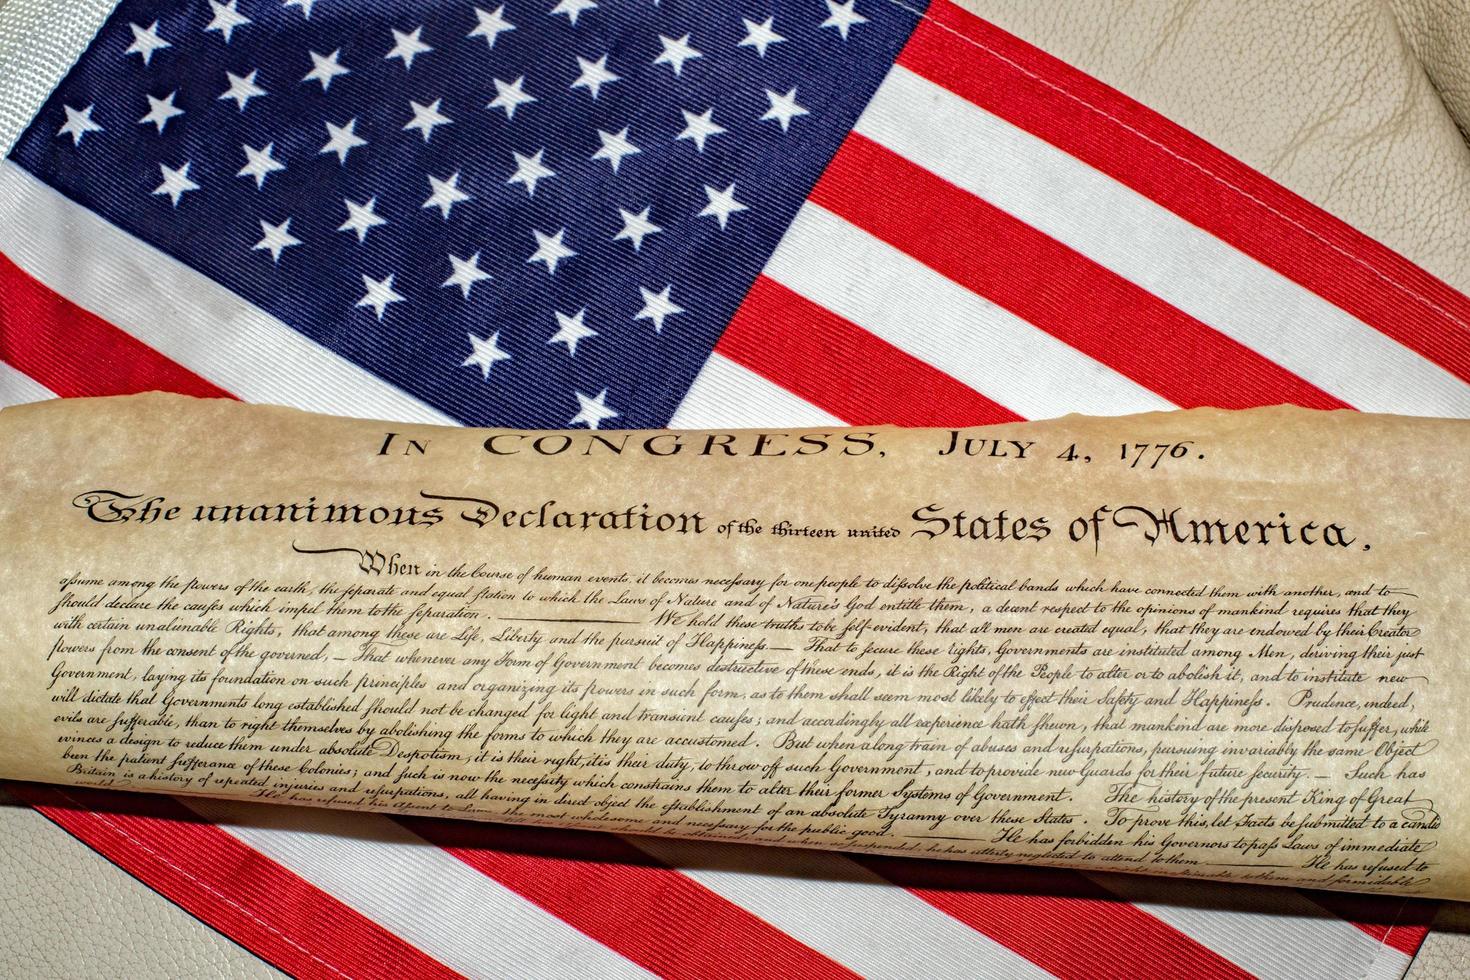 In CONGRESS, July 4, 1776.
The unanimous Declaration of the thirteen united States of America,
When in the Course of human events, it becomes necessary for one people to dissolve the political bands which have connected them with another, and to
assume among the powers of the earth, the separate and equal station to which the Laws of Nature and of Nature's God entitle them, a decent respect to the opinions of mankind requires that they
should declare the causes which impel them to the separation. — We hold these truths to be self-evident, that all men are created equal, that they are endowed by their Creator
with certain unalienable Rights, that among these are Life, Liberty and the pursuit of Happiness. — That to secure these rights, Governments are instituted among Men, deriving their just
powers from the consent of the governed, — That whenever any Form of Government becomes destructive of these ends, it is the Right of the People to alter or to abolish it, and to institute new
Government, laying its foundation on such principles and organizing its powers in such form, as to them shall seem most likely to effect their Safety and Happiness. Prudence, indeed,
will dictate that Governments long established should not be changed for light and transient causes; and accordingly all experience hath shewn, that mankind are more disposed to suffer, while
evils are sufferable, than to right themselves by abolishing the forms to which they are accustomed. But when a long train of abuses and usurpations, pursuing invariably the same Object
evinces a design to reduce them under absolute Despotism, it is their right, it is their duty, to throw off such Government, and to provide new Guards for their future security. — Such has
been the patient sufferance of these Colonies; and such is now the necessity which constrains them to alter their former Systems of Government. The history of the present King of Great
Britain is a history of repeated injuries and usurpations, all having in direct object the establishment of an absolute Tyranny over these States. To prove this, let Facts be submitted to a candid
world. He has refused his Assent to Laws, the most wholesome and necessary for the public good. — He has forbidden his Governors to pass Laws of immediate
should be obtained, and when so suspended, he has utterly neglected to attend to them. — He has refused to
to them and formidable